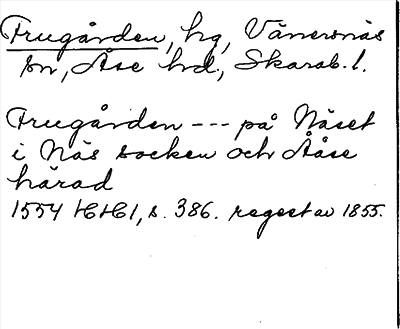 Frugården, hg, Vänersnäs
sn, Åse hd., Skarab. l.
Frugården --- på Näset
i Näs socken och Ååse
härad
1554 HH1, s. 386. regest av 1855.